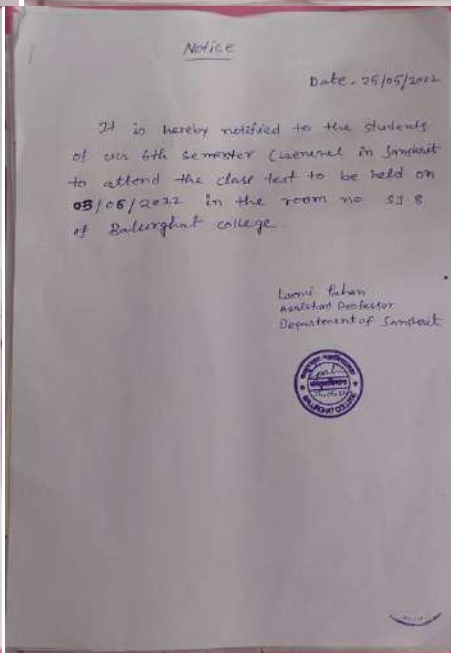 Notice
Date - 25/05/2022
It is hereby notified to the students
of 6th semester General in Sanskrit
to attend the class test to be held on
03/06/2022 in the room no SJ-8
of Balurghat college.
Assistant Professor
Department of Sanskrit
BALURGHAT COLLEGE